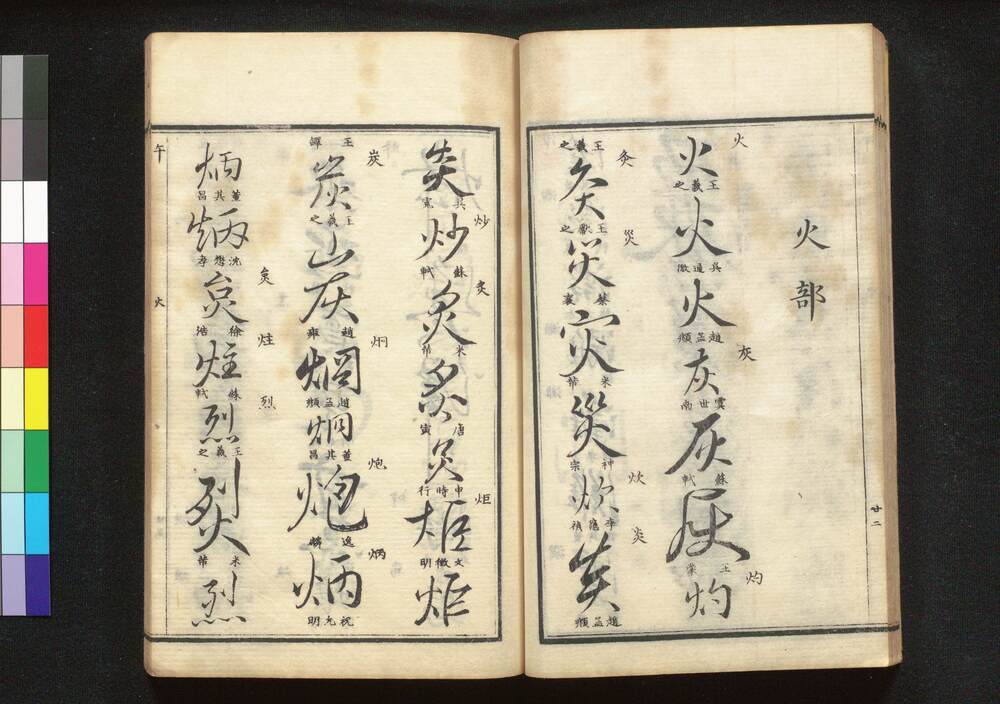 火部
火 灰 灼
火 王羲之 火 火 趙孟頫 灰 虞世南 灰 蘇軾 灰 王蒙 灼
灸 災 炊 炎
王羲之 灸 王獻之 災 蔡襄 灾 米芾 災 神宗 炊 李應禎 炎 趙孟頫
廿二
炒 炙 炬
炎 吳寬 炒 蘇軾 炙 米芾 炙 唐寅 炙 申時行 炬 文徵明 炬
炭 炯 炮 炳
王鐸 炭 王羲之 炭 趙雍 炯 趙孟頫 炯 董其昌 炮 炳 祝允明
炱 炷 烈
炳 董其昌 炳 沈懋孝 炱 徐浩 炷 蘇軾 烈 王羲之 烈 米芾 烈
午 火